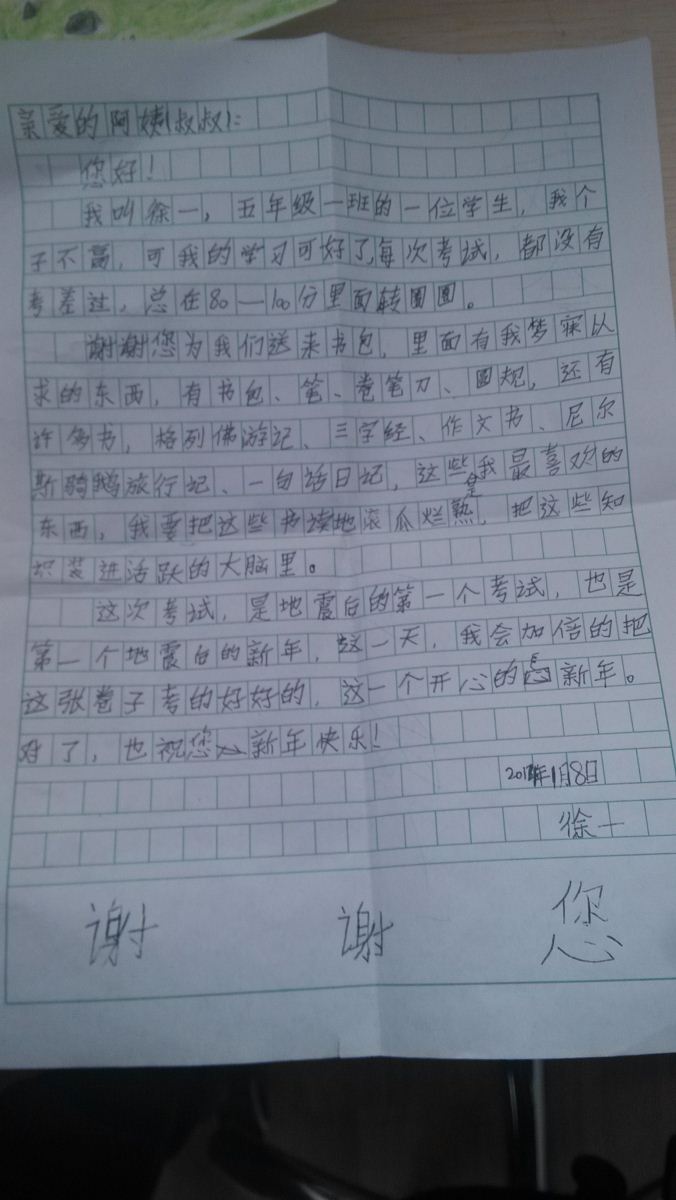 亲爱的阿姨(叔叔):
您好!
我叫徐一,五年级一班的一位学生,我个
子不高,可我的学习可好了,每次考试,都没有
考差过,总在80—100分里面转圈圈。
谢谢您为我们送来书包,里面有我梦寐以
求的东西,有书包、笔、卷笔刀、圆规,还有
许多书,格列佛游记、三字经、作文书、尼尔
斯骑鹅旅行记、一句话日记,这些是我最喜欢的
东西,我要把这些书读地滚瓜烂熟,把这些知
识装进活跃的大脑里。
这次考试,是地震后的第一个考试,也是
第一个地震后的新年,这一天,我会加倍的把
这张卷子考的好好的,这一个开心的新年。
对了,也祝您新年快乐!
年1月8日
徐一
谢 谢 您